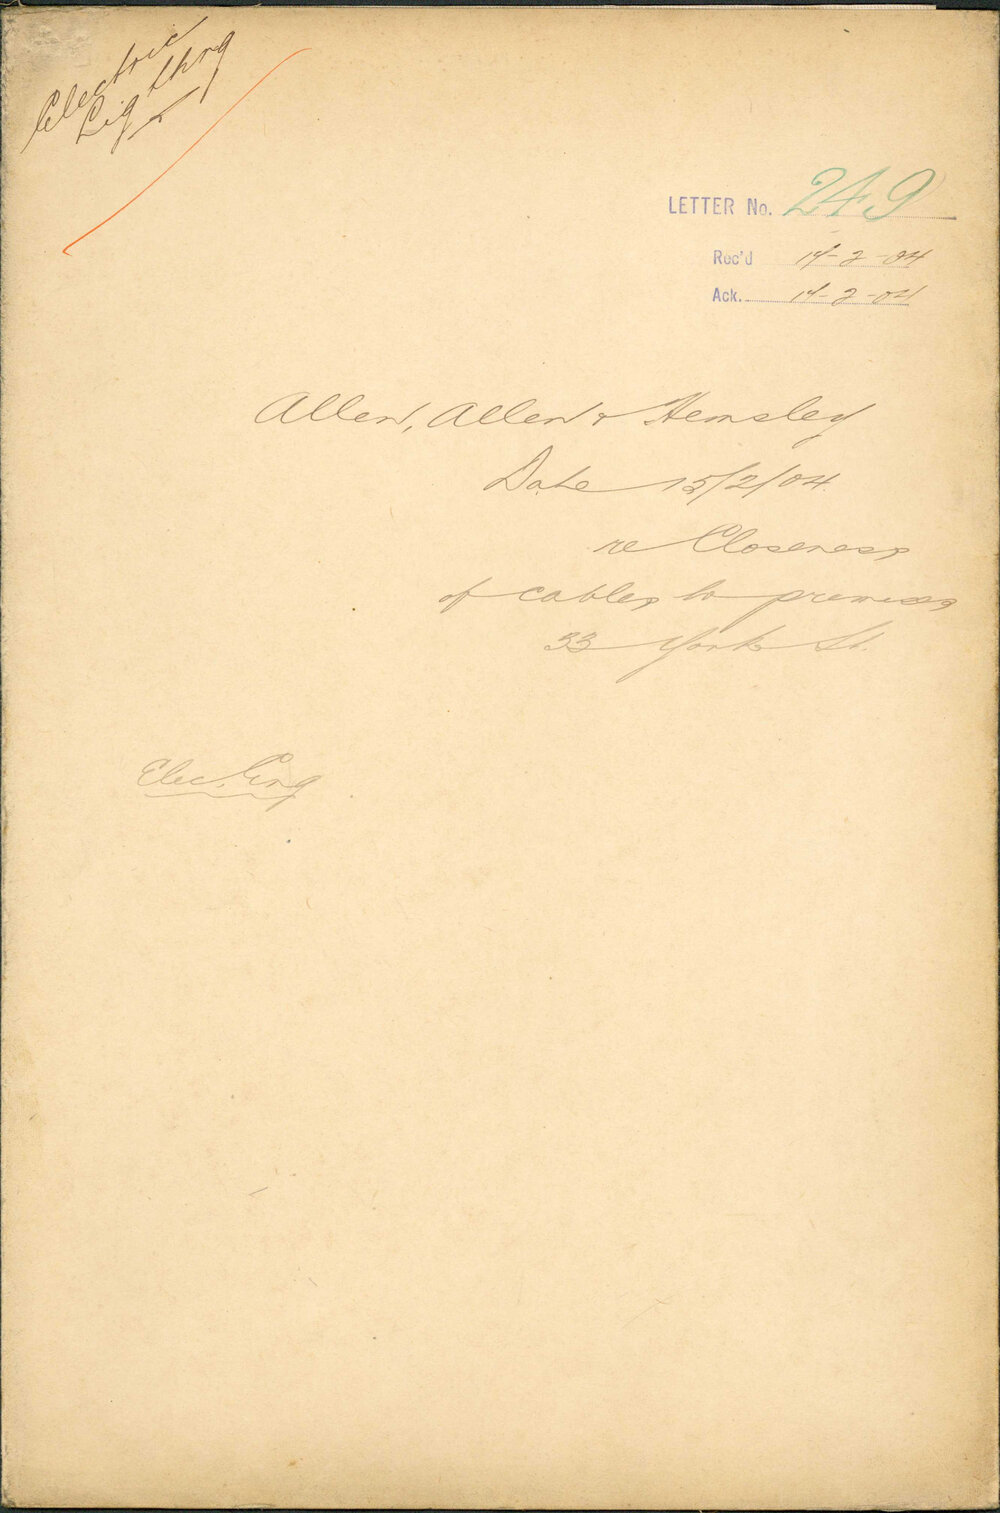 Electric
Lighting
LETTER No. 249
Rec'd 17-2-04
Ack. 17-2-04
Allen, Allen & Hemsley
Date 15/2/04
re Closeness
of cables to premises
33 York St.
Elec. Eng